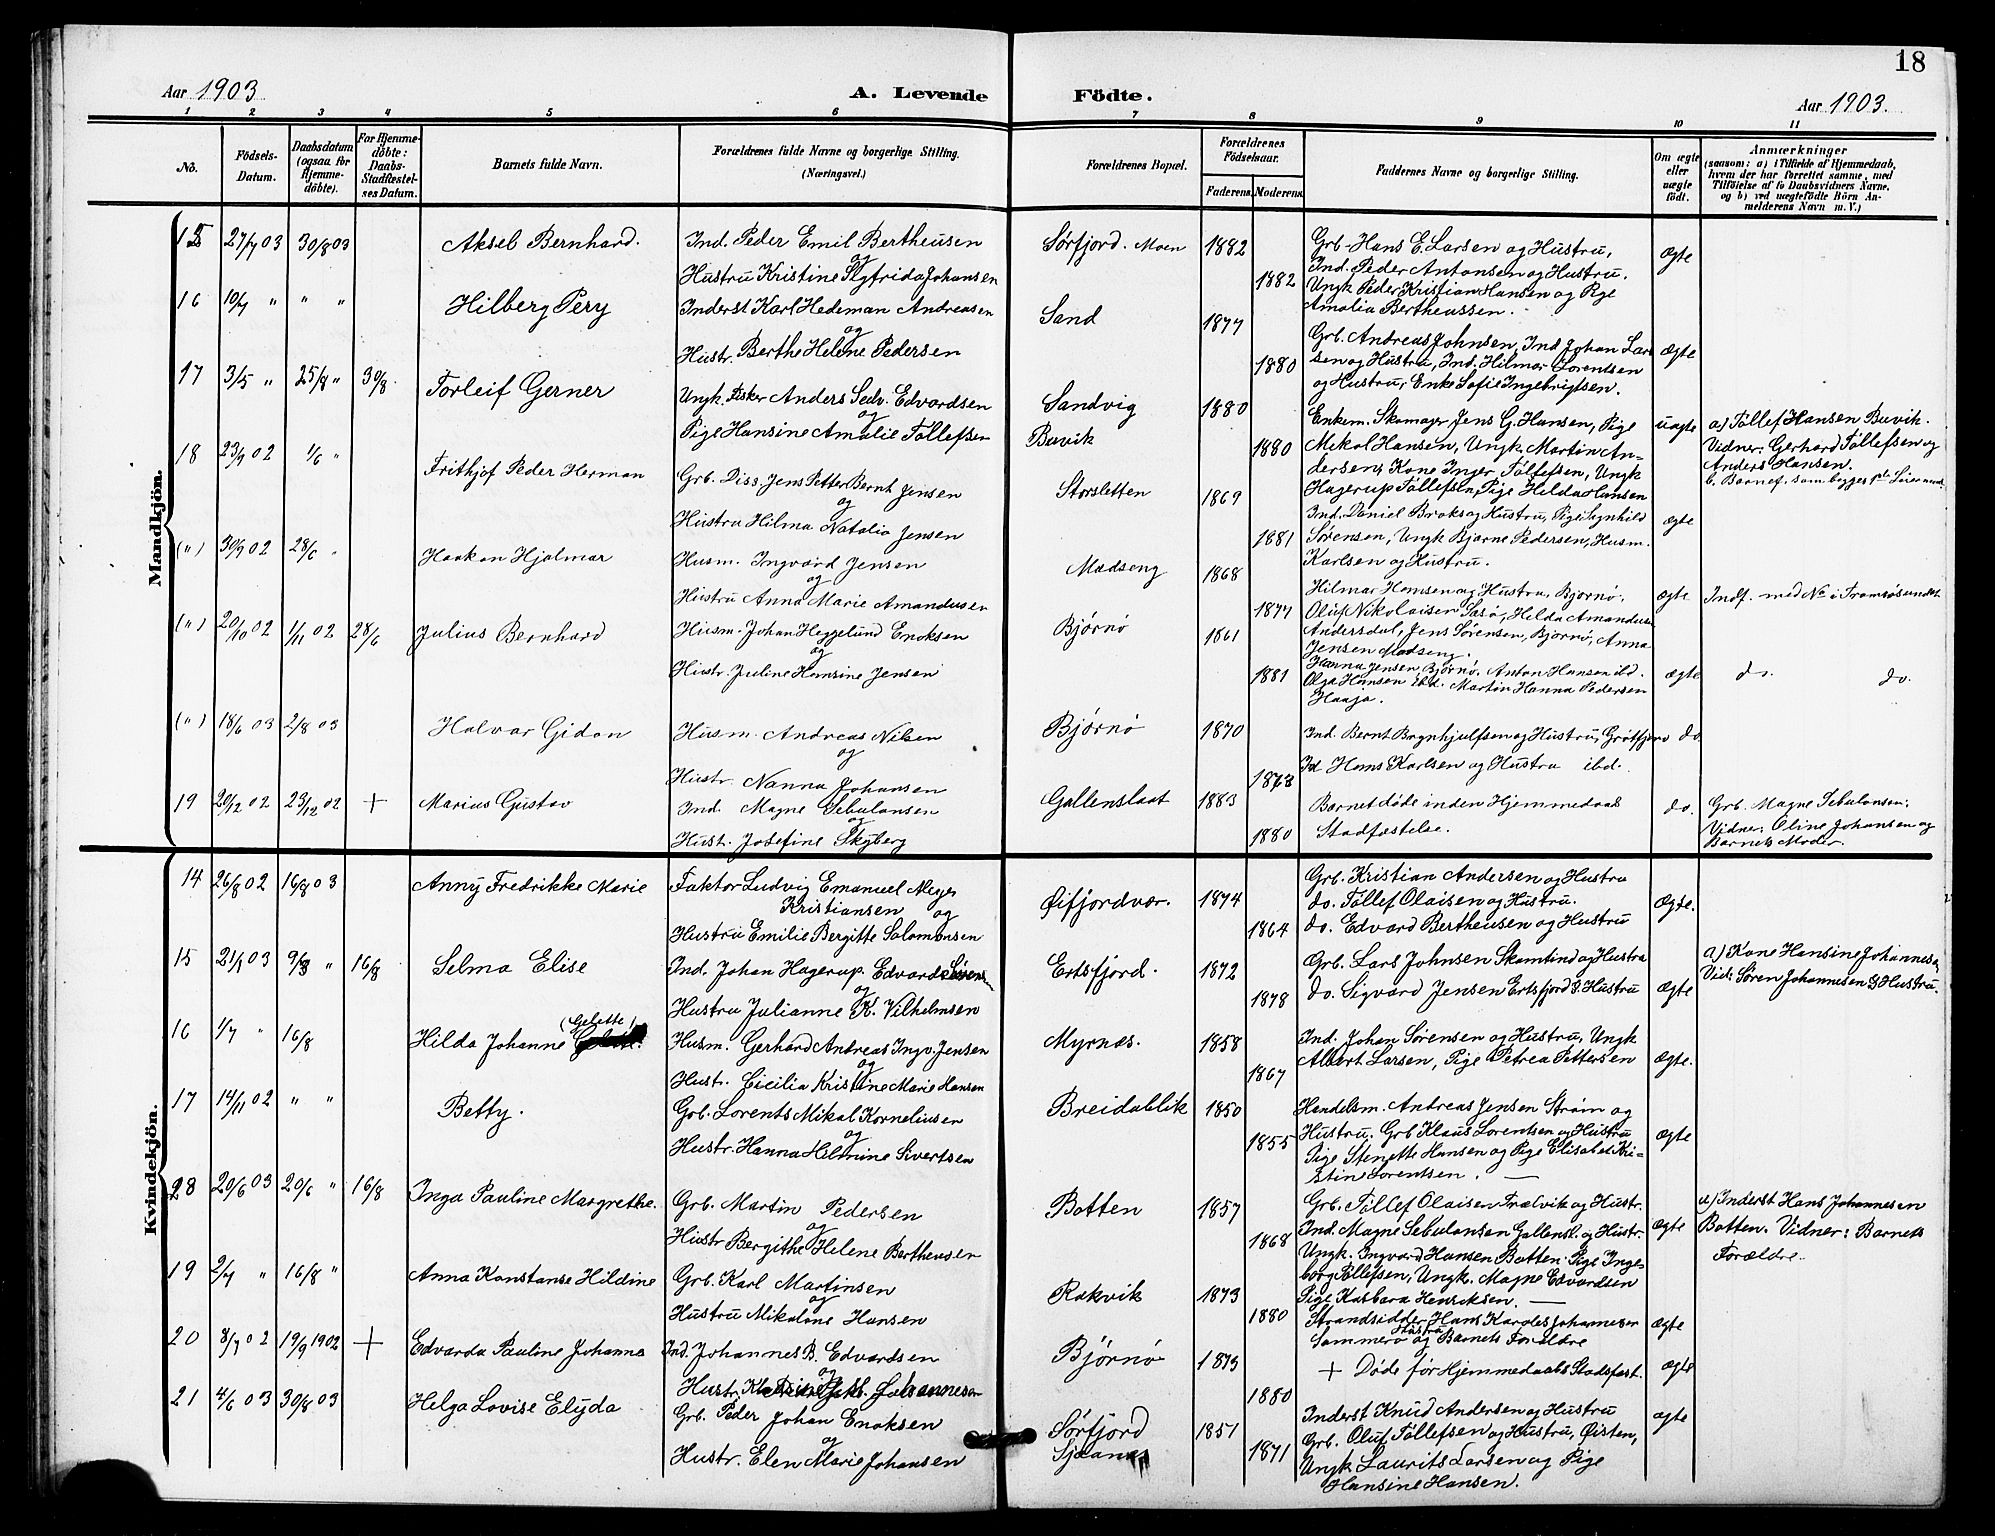 18
Aar 1903
A. Levende
Födte.
Aar 1903.
1 2 3 4 5 6 7 8 9 10 11
No.
Födsels-
Datum.
Daabsdatum
(ogsaa for
Hjemme-
döbte).
For Hjemme-
döbte:
Daabs-
Stadfæstel-
ses Datum.
Barnets fulde Navn.
Forældrenes fulde Navne og borgerlige Stilling.
(Næringsvei.)
Forældrenes Bopæl.
Forældrenes
Födselsaar.
Faderens. Moderens.
Faddernes Navne og borgerlige Stilling.
Om ægte
eller
uægte
födt.
Anmærkninger
(saasom: a) i Tilfælde af Hjemmedaab,
hvem der har forrettet samme, med
Tilföielse af to Daabsvidners Navne,
og b) ved uægtefödte Börn An-
melderens Navn m. V.)
Mandkjön.
15 27/7 03 30/8 03 Aksel Bernhard. Ind. Peder Emil Bertheusen
og
Hustru Kristine Sigfrida Johansen
Sørfjord. Moen 1882
1882
Grb. Hans E. Larsen og Hustru,
Ind. Peder Antonsen og Hustru.
Ungk. Peder Kristian Hansen og Pige
Amalia Bertheussen.
ægte
16 10/7 " " " Hilberg Pery Inderst Karl Hedeman Andreasen
og
Hustr. Berthe Helene Pedersen
Sand 1877
1880
Grb. Andreas Johnsen, Ind. Johan Lar
sen og Hustru, Ind. Hilmar Lorentsen
og Hustru, Enke Sofie Ingebrigtsen.
ægte
17 3/5 " 25/8 " 30/8. Torleif Gerner Ungk. Fisker Anders Sedv. Edvardsen
og
Pige Hansine Amalie Tollefsen
Sandvig 1880
Buvik 1880
Enkem. Skomager Jens G. Hansen, Pige
Mekal Hansen, Ungk. Martin An-
dersen, Kone Inger Tollefsen, Ungk
Hagerup Tollefsen, Pige Hilda Hansen
uægte
a) Tollef Hansen Buvik.
Vidner: Gerhard Tollefsen og
Anders Hansen.
18 23/9 02 1/6 " Frithjof Peder Herman Grb. Diss. Jens Petter Bernt Jensen
og
Hustru Hilma Natalia Jensen
Storsletten 1869
1881
Ind. Daniel Broks og Hustru, Pige Signhild
Sørensen, Ungk Bjarne Pedersen, Husm.
Karlsen og Hustru.
ægte
(") 30/9 02 28/6 " Haakon Hjalmar Husm. Ingvard Jensen
og
Hustru Anna Marie Amandusen
Madseng 1868
1877
Hilmar Hansen og Hustru, Bjørnø,
Oluf Nikolaisen Sasø, Hilda Amandusen
Andersdal, Jens Sørensen, Bjørnø, Anna
Jensen Madseng.
ægte
Indf. med No i Tromsøsundet
(") 20/10 02 1/11 02 28/6 Julius Bernhard Husm. Johan Heggelund Enoksen
og
Hustr. Juline Hansine Jensen
Bjørnø 1861
1881
Hanna Jensen Bjørnø, Anton Hansen ibd.
Olga Hansen ibd. Martin Hanna Pedersen
Haaja.
ægte do. do.
(") 18/6 03 2/8 03 Halvar Gidon Husm. Andreas Nilsen
og
Hustr. Nanna Johansen
Bjørnø 1870
1873
Ind. Bernt Brynhjulfsen og Hustru, Grøtfjord
Id Hans Karlsen og Hustru ibd.
do.
19 20/12 02 23/12 02 + Marius Gustav Ind. Magne Sebulonsen
og
Hust. Josefine Skyberg
Gallenslaat 1883
1880
Barnet døde inden Hjemmedaab
Stadfæstelse.
do.
Grb. Magne Sebulonsen:
Vidner: Oline Johansen og
Barnets Moder.
Kvindekjön.
14 26/8 02 16/8 03 Anny Fredrikke Marie Faktor Ludvig Emanuel Meyer
Kristiansen og
Hustru Emilie Bergitte Salomonsen
Øifjordvær. 1874
1864
Grb. Kristian Andersen og Hustru
do. Tollef Olaisen og Hustru.
do. Edvard Bertheusen og Hustru
Ægte.
15 21/1 03 9/3 " 16/8 Selma Elise Ind. Johan Hagerup Edvard Sørensen
og
Hustru Julianne K. Vilhelmsen
Ertsfjord. 1872
1878
Grb. Lars Johnsen Skamtind og Hustru
do. Sigvard Jensen Ertsfjord & Hustru
ægte
a) Kone Hansine Johannesen
Vid: Søren Johannesen & Hustru.
16 1/7 " 16/8 Hilda Johanne (Gelette) Husm. Gerhard Andreas Ingv. Jensen
og
Hustr. Cicilia Kristine Marie Hansen
Myrnæs. 1858
1867
Ind. Johan Sørensen og Hustru, Ungk
Albert Larsen, Pige Petrea Pettersen
ægte.
17 14/11 02 " " Betty. Grb. Lorents Mikal Korneliusen
og
Hustr. Hanna Helmine Sivertsen
Breidablik 1850
1855
Handelsm. Andreas Jensen Strøm og
Hustru. Grb Klaus Lorentsen og Hustru
Pige Stenette Hansen og Pige Elisabet Kri-
stine Lorentsen. —
ægte
28 20/6 03 20/6 " 16/8 Inga Pauline Margrethe. Grb. Martin Pedersen
og
Hustr Bergithe Helene Bertheusen
Botten 1857
1868
Grb. Tollef Olaisen Trælvik og Hustr.
Ind. Magne Sebulonsen Gallensl. og Hustr.
Ungk. Ingvard Hansen Botten. Pige Inge-
borg Tollefsen, Ungk. Magne Edvardsen
Pige Karbara Henriksen. —
ægte
a) Inderst Hans Johannesen
Botten. Vidner: Barnets
Forældre.
19 2/7 " 16/8 " Anna Konstanse Hildine Grb. Karl Martinsen
og
Hustru Mikaline Hansen
Rakvik 1873
1880
Strandsidder Hans Karoles Johannesen
Sommerø Hustru og Barnets Forældre
ægte
20 8/9 02 19/9 1902 + Edvarda Pauline Johanna Ind. Johannes B. Edvardsen
og
Bjørnø 1873
1880
+ Døde før Hjemmedaabs Stadfæst.
ægte
21 4/6 03 30/8 03 Helga Lovise Elyda Grb. Peder Johan Enoksen
og
Hustr. Elen Marie Johansen
Sørfjord
Sjøanes 1857
1871
Inderst Knud Andersen og Hustru
Grb. Oluf Tollefsen og Hustru, Øisten,
Ungk Laurits Larsen og Pige
Hansine Hansen.
ægte